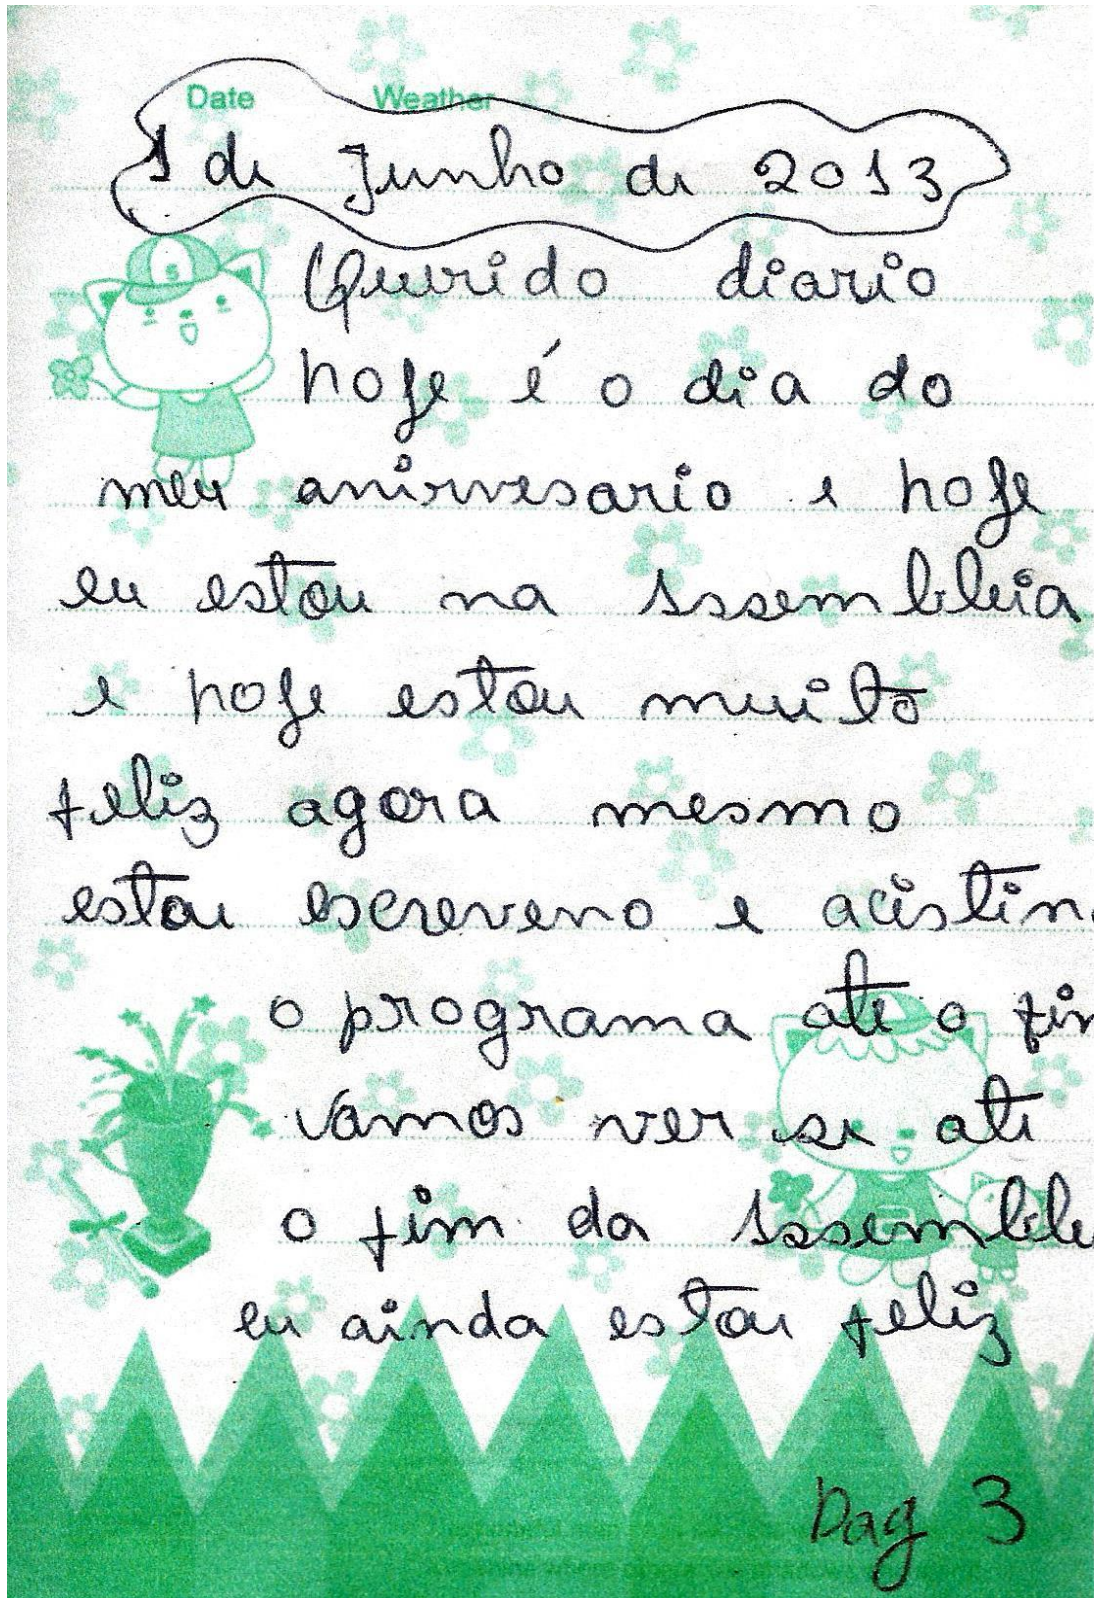 Date Weather
1 de Junho de 2013
Querido diario
hoje é o dia do
meu anirvesario e hoje
eu estou na Assembleia
e hoje estou muito
feliz agora mesmo
estou escreveno e acistin
o programa ate o fim
vamos ver se ate
o fim da Assemble
eu ainda estou feliz
Pag 3